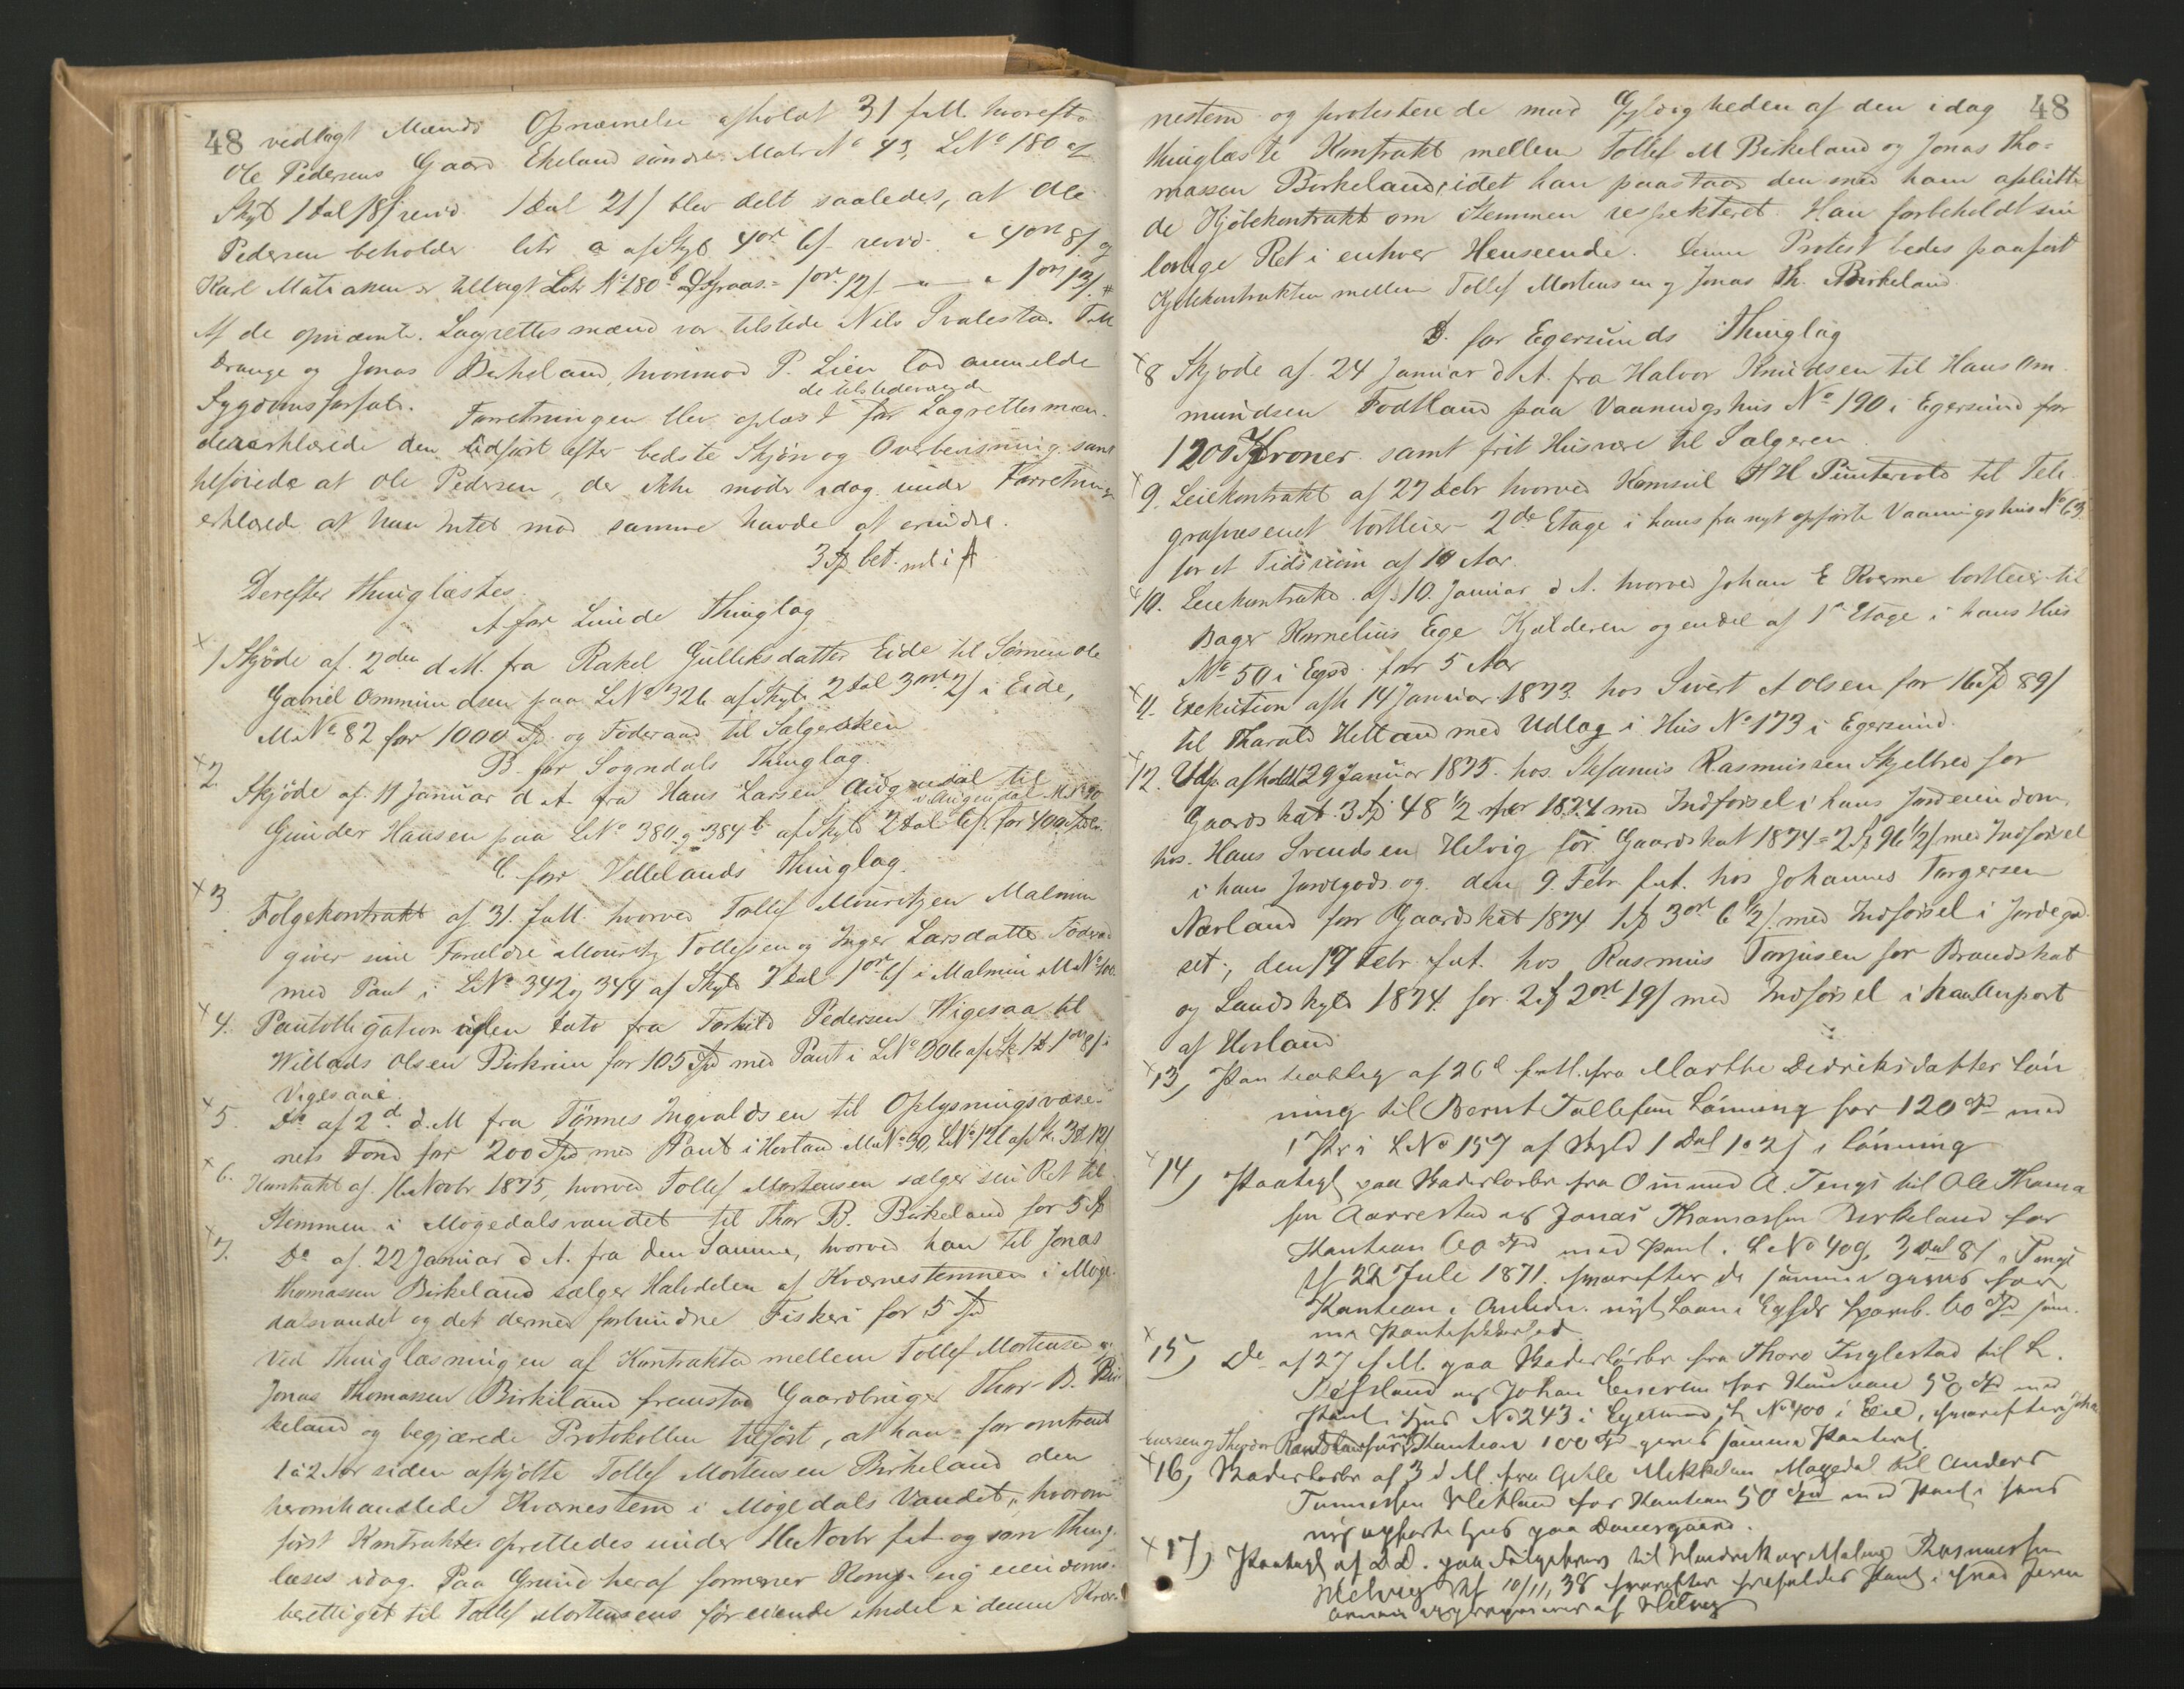 48 vedtagt Mænds Opnævnelse afholdt 31 f.M. hvorefter
Ole Pedersens Gaard Ekeland søndre Matr No 43, LNo 180 af
Skyld 1 Dal 18/ revid. 1 Dal 21/ blev delt saaledes, at Ole
Pedersen beholder litr a af Skyld 4 ort 6/ revid. " 4 ort 8/ og
Karl Matiasen er tillagt Litr No 180 b 1 ort 12/ " 1 ort 13/
Af de opnævnte Lagrettesmænd var tilstede Nils Svalestad. T M
Drange og Jonas Birkeland, hvorimod P. Lien lod anmelde
Sygdomsforfald. Forretningen blev oplæst for de tilstedeværende Lagrettesmæn-
der erklærede den udført efter bedste Skjøn og Overbevisning samt
tilføiede at Ole Pedersen, der ikke møder idag under Forretningen
erklærede at han Intet mod samme havde at erindre.
3 Sp bet. ndl i A
Derefter thinglæstes
A for Lunde Thinglag
1 Skjøde af 2den d.M. fra Rakel Gulleksdatter Eide til Sønnen Ole
Gabriel Ommundsen paa LNo 326 af Skyld 2 Dal 3 ort 2/ i Eide,
M No 82 for 1000 Spd og Føderaad til Sælgersken
B. for Sogndals Thinglag.
2. Skjøde af 11 Januar d A. fra Hans Larsen Augendal til
Gunder Hansen paa LNo 380 og 384 b af Skyld 2 Dal 6/ i Augendal M No 90 for 400 Spdlr
C. for Hellelands Thinglag.
3 Følgekontrakt af 31. f.M. hvorved Tollef Mouritzen Malmin
giver sine Forældre Mouritz Tollefsen og Inger Larsdatter Føderaad
med Pant i LNo 342 og 344 af Skyld 2 Dal 1 ort 6/ i Malmin M No 100
4. Pantobligation uden Dato fra Torkild Pedersen Wigesaa til
Willads Olsen Birkrem for 105 Spd med Pant i LNo 306 af Sk 1 D 1 ort 8/ i
Vigesaae.
5. Do af 2d d.M fra Tønnes Ingvaldsen til Oplysningsvæse-
nets Fond for 200 Spd med Pant i Hovland M No 30, LNo 121 af Sk. 3 D 12/
6. Kontrakt af 16 Novbr 1875, hvorved Tollef Mortensen sælger sin Ret til
Stemmen i Mögedalsvandet til Thor B. Birkeland for 5 Sp
7. Do af 22 Januar d A. fra den Samme, hvorved han til Jonas
Thomassen Birkeland sælger Halvdelen af Kværnestemmen i Möge-
dalsvandet og det dermed forbundne Fiskeri for 5 Spd
Ved Thinglæsningen af Kontrakten mellem Tollef Mortensen og
Jonas Thomassen Birkeland fremstod Gaardbruger Thor B. Bir-
keland og begjærede Protokollen tilført, at han for omtrent
1 à 2 Aar siden afkjøbte Tollef Mortensen Birkeland den
heromhandlede Kværnestem i Mögedals Vandet, hvorom
først Kontrakten oprettedes under 16 Novbr f.A. og som thing-
læses idag. Paa Grund heraf formener Komp. sig eiendoms-
berettiget til Tollef Mortensens før eiende Andel i denne Kvær-
48
nestem og protesterede mod Gyldigheden af den idag
thinglæste Kontrakt mellem Tollef M Birkeland og Jonas Tho-
massen Birkeland, idet han paastaar den med ham afslutte-
de Kjøbekontrakt om Stemmen respekteret. Han forbeholdt sin
lovlige Ret i enhver Henseende. Denne Protest bedes paaført
Kjøbekontrakten mellem Tollef Mortensen og Jonas Th. Birkeland
D. for Egersunds Thinglag
8 Skjøde af 24 Januar d A. fra Halvor Knudsen til Hans Om-
mundsen Fodtland paa Vaaningshus No 190 i Egersund for
1200 Kroner samt frit Husvære til Sælgeren.
9. Leiekontrakt af 27 Debr hvorved Konsul H H Puntervold til Tele-
grafvæsenet bortleier 2den Etage i hans fra nyt opførte Vaaningshus No 63
for et Tidsrum af 10 Aar.
10. Leiekontrakt af 10. Januar d A. hvorved Johan E Kverne bortleier til
Bager Kornelius Ege Kjælderen og endel af 1e Etage i hans Hus
No 50 i Egsd. for 5 Aar
11. Exekution afh 14 Januar 1873 hos Sivert A Olsen for 16 Sp 89/
til Tharald Hetland med Udlæg i Hus No 173 i Egersund.
12. Udp. afholdt 29 Januar 1875. hos Stefanus Rasmussen Skjelbred for
Gaardskat 3 Sp 48 1/2 / for 1874 med Indførsel i hans Jordeiendom,
hos Hans Svendsen Helvig for Gaardskat 1874 = 2 Sp 96 1/2 / med Indførsel
i hans Jordegods og den 9. Febr. f.A. hos Johannes Torgersen
Nærland for Gaardskat 1874 1 Sp 3 ort 6 1/2 / med Indførsel i Jordegod-
set, den 17 Febr. f.A. hos Rasmus Torjusen for Brandskat
og Landskyld 1874 for 2 Sp 2 ort 19/ med Indførsel i
af Hovland
13, Panteoblig af 26d f.M. fra Marthe Dedriksdatter Løn
ning til Bernt Tollefsen Lønning for 120 Spd med
1 Pr i LNo 157 af Skyld 1 Dal 1 o 2/ i Lønning
14, Paategl paa Kaderlasbr fra Ommund A. Tengs til Ole Thoma
sen Aarrestad og Jonas Thomassen Birkeland for
Kaution 60 Spd med Pant i LNo 409, 3 Dal 8/ i Tengs
af 22 Juli 1871. hvorefter de samme gives for
Kaution i Anledn. nyt Laan i Egsds Spareb. 60 Spd sam-
me Pantesikkerhed.
15, Do af 27 f.M. paa Kaderlösbr fra Thore Inglestad til L.
og Johan for Kaution 50 Spd med
Pant i Hus No 243 i Egersund, L No 400 i Eie, hvorefter Joha
Kaution 100 Spd gives samme Panteret.
16, Kaderlosbr af 3 d M. fra Mikkelsen Møgedal til Anders
Tønnessen for Kaution 50 Spd med Pant i hans
nyopførte Hus paa Damsgaard.
17, Paategl af D.D. paa til Hendrik og Malene Rasmussen
Helvig af 10/11, 38 hvorefter frafaldes Pant i
af Helvig